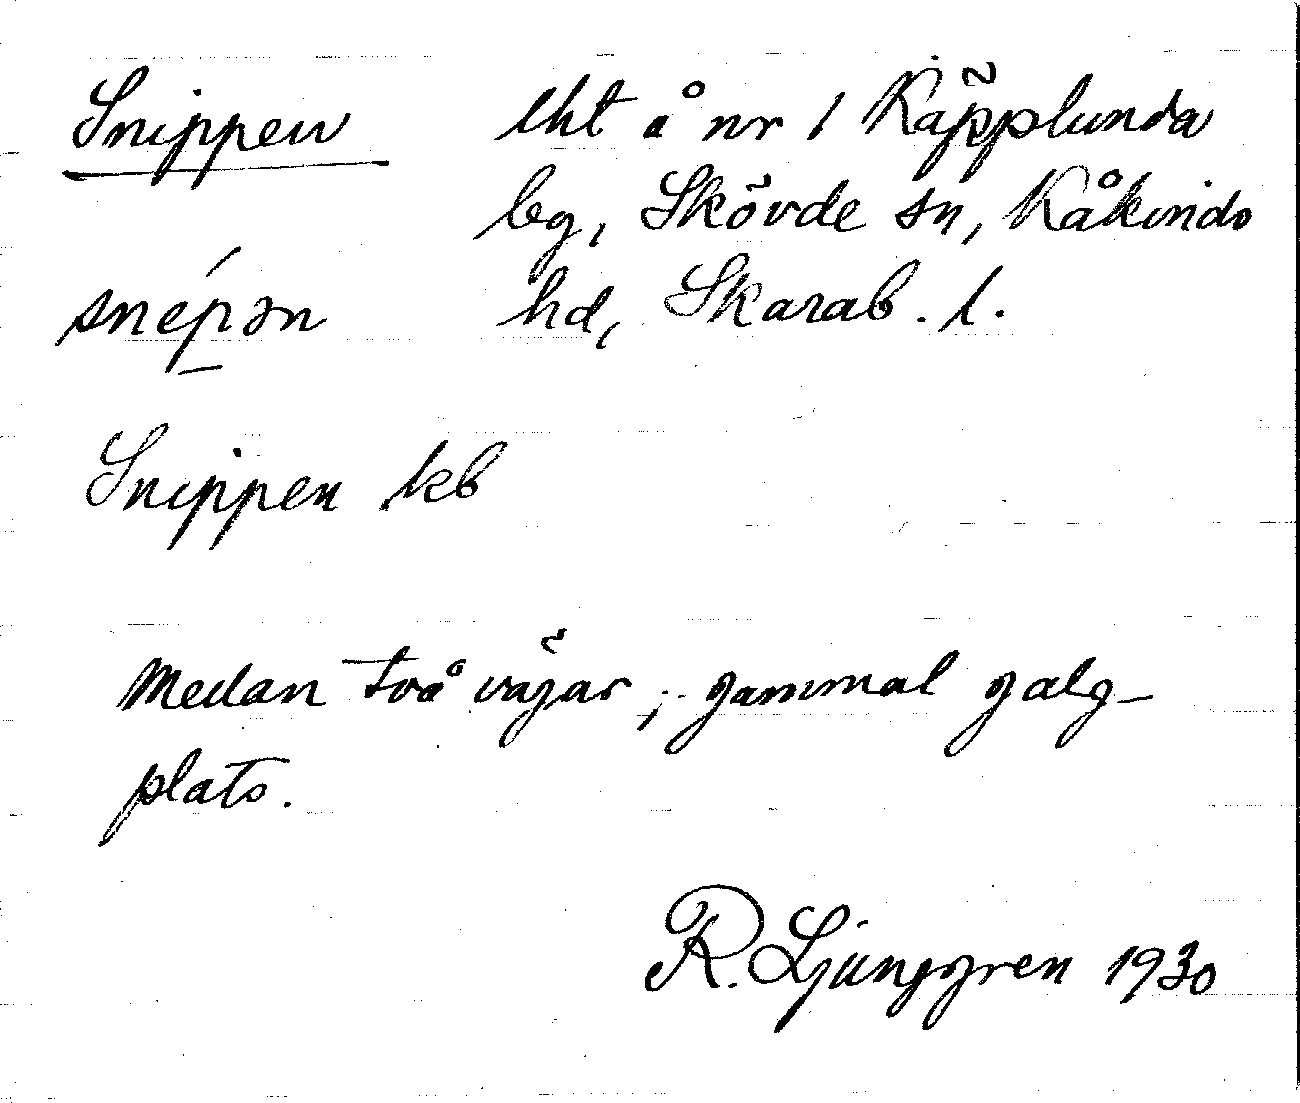 Snippen lht å nr 1 Käpplunda
bg, Skövde sn, Kåkinds
snépən hd, Skarab. l.
Snippen kb
Medan två vägar, gammal galg-
plats.
R. Ljunggren 1930